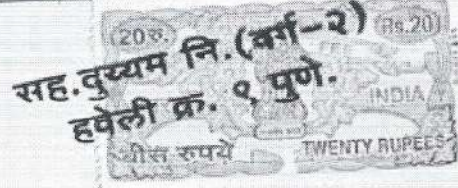 (20रु.)
(Rs.20)
सह.दुय्यम नि.(वर्ग-२)
हवेली क्र. ९, पुणे.
INDIA
बीस रुपये
TWENTY RUPEES